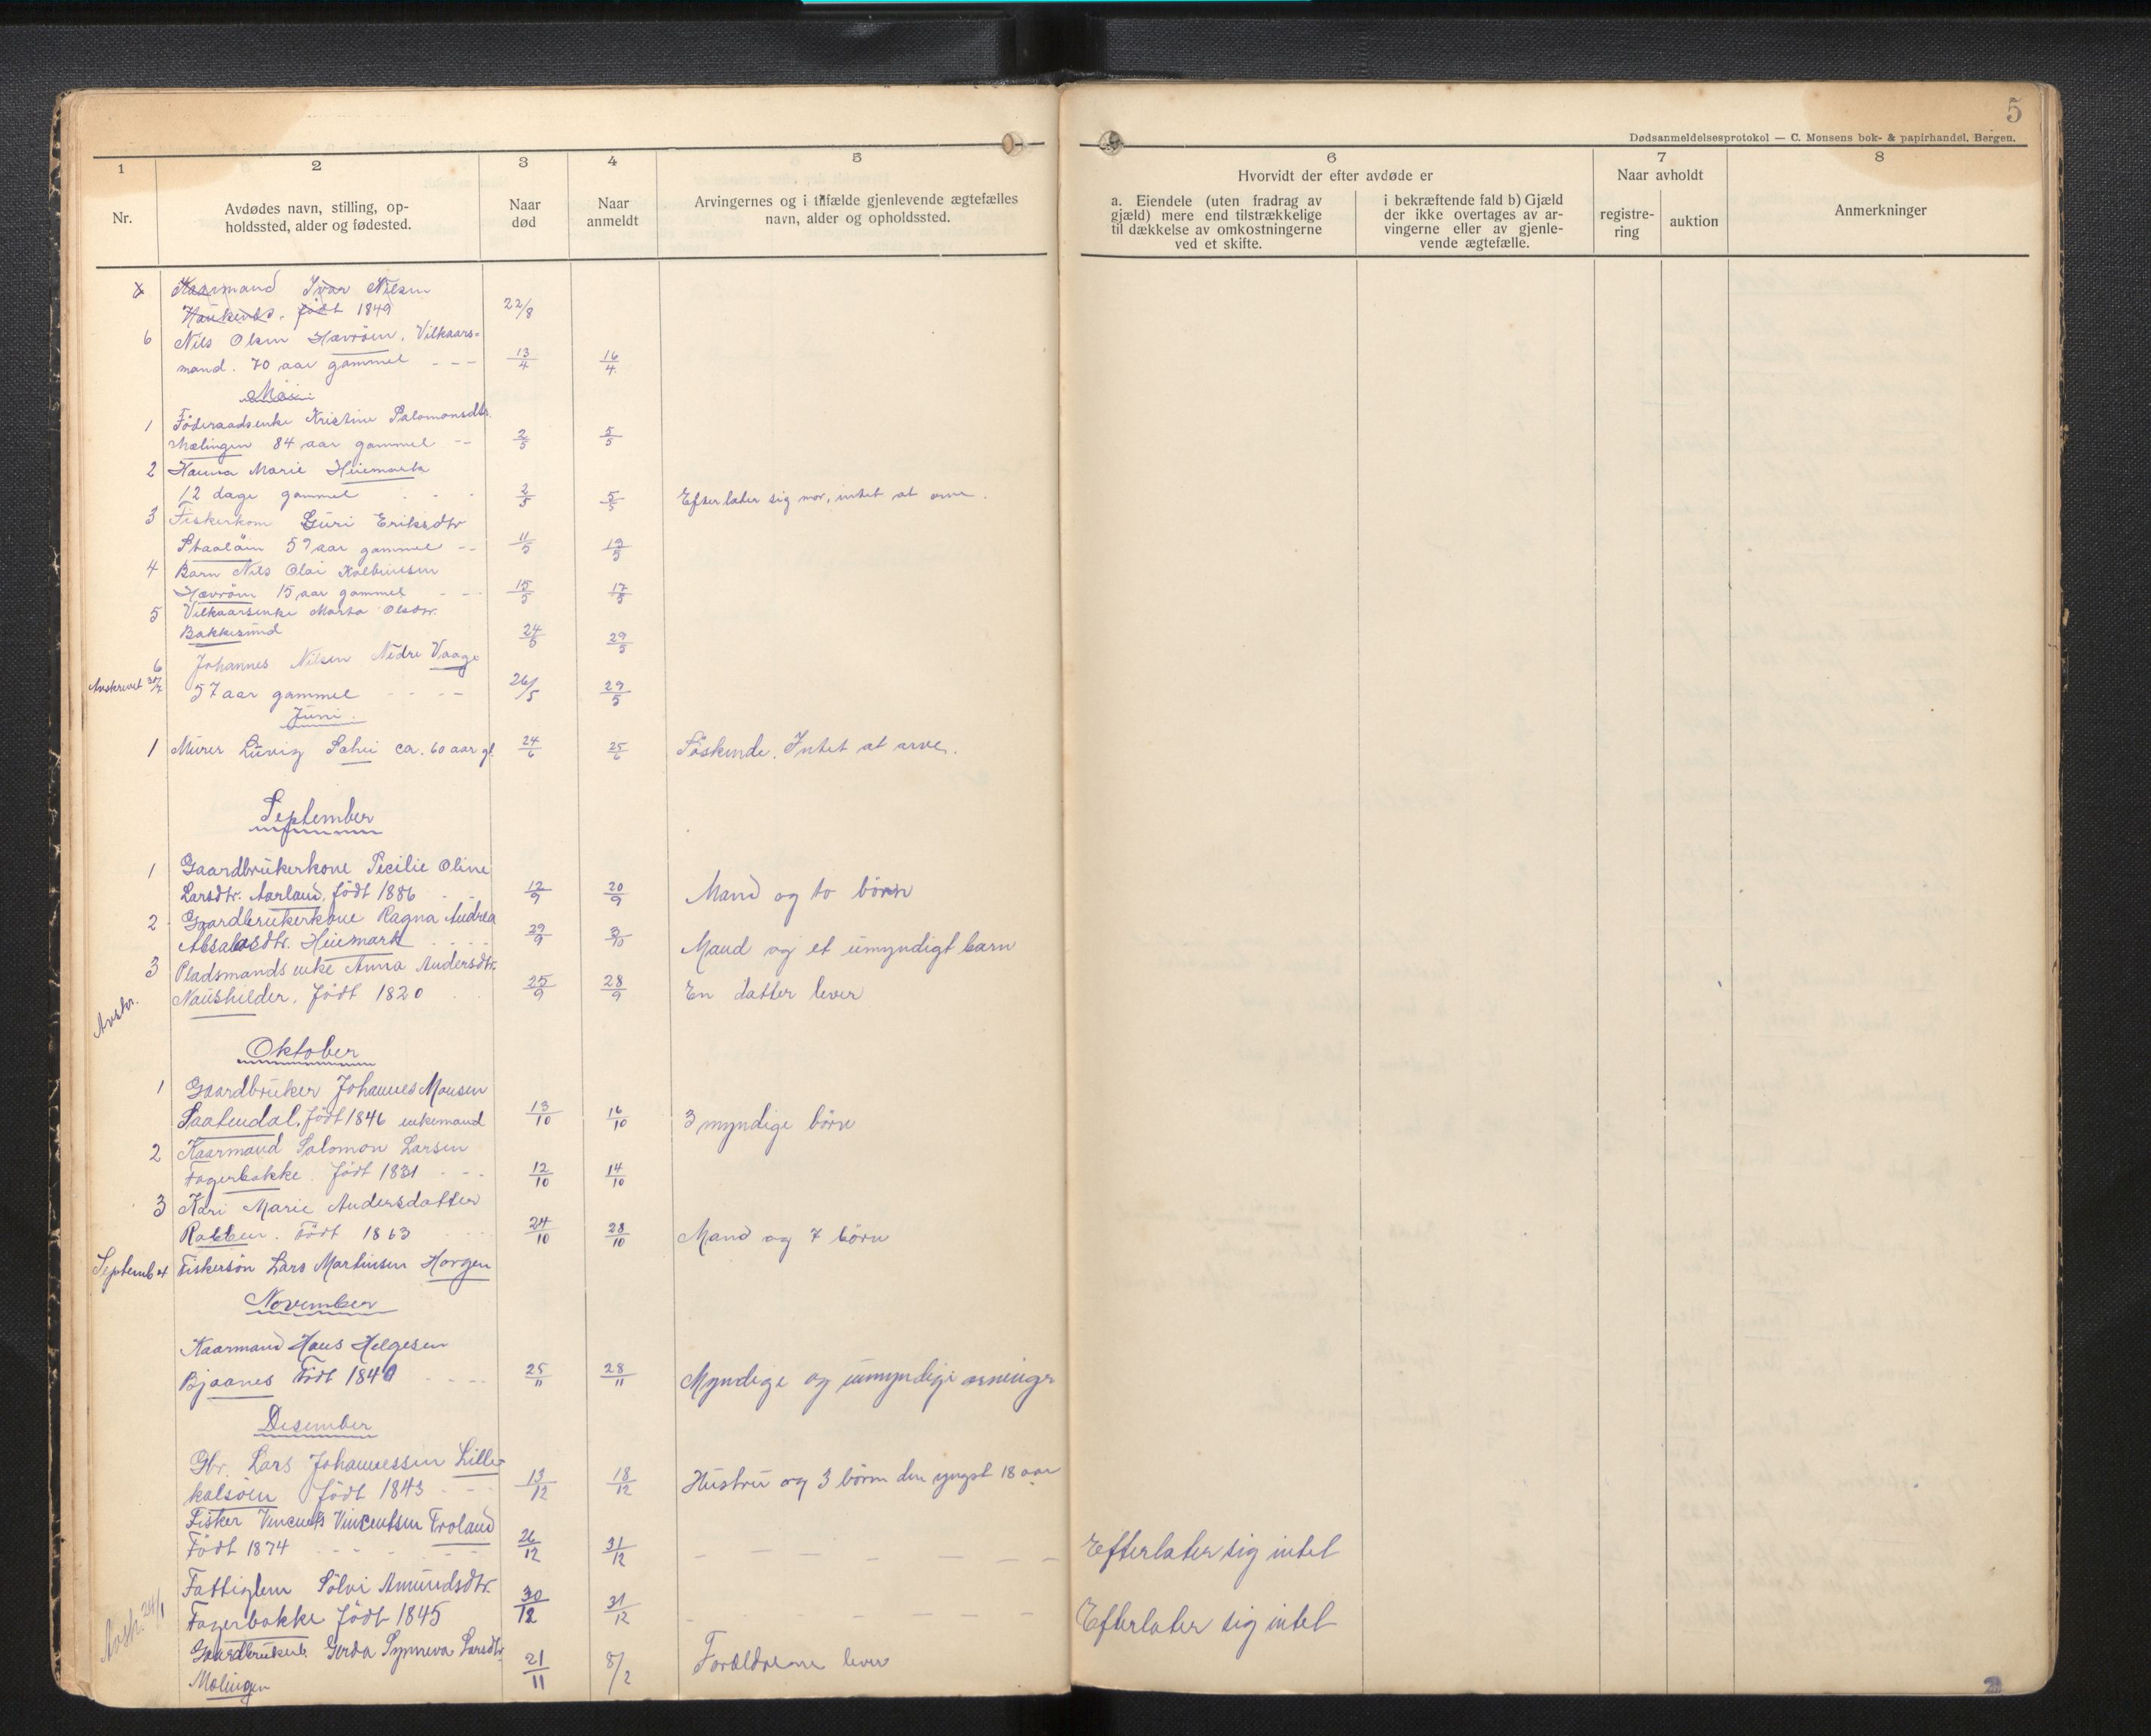 5
Dødsanmeldelsesprotokol — C. Monsens bok- & papirhandel, Bergen.
1 2 3 4 5 6 7 8
Nr.
Avdødes navn, stilling, op-
holdssted, alder og fødested.
Naar
død
Naar
anmeldt
Arvingernes og i tilfælde gjenlevende ægtefælles
navn, alder og opholdssted.
Hvorvidt der efter avdøde er
a. Eiendele (uten fradrag av
gjæld) mere end tilstrækkelige
til dækkelse av omkostningerne
ved et skifte.
i bekræftende fald b) Gjæld
der ikke overtages av ar-
vingerne eller av gjenle-
vende ægtefælle.
Naar avholdt
registre-
ring
auktion
Anmerkninger
Kaarmand Ivar Nilsen
født 1849 22/8
6 Nils Olsen Hævröen, Vilkaars-
mand. 70 aar gammel - - - 13/4 16/4
Mai
1 Föderaadsenke Kristine Salomonsdtr.
Mælingen 84 aar gammel -- 2/5 5/5
2 Hanna Marie Heiemark
12 dage gammel 2/5 5/5 Efterlater sig mor, intet at arve.
3 Fiskerkone Guri Eriksdtr
59 aar gammel -- 11/5 13/5
4 Barn Nils Olai Kolbeinsen
Hævröen 15 aar gammel 15/5 17/5
5 Vilkaarsenke Marta Olsdtr.
Bakkesund 24/5 29/5
6 Johannes Nilsen Nedre Vaage
Avskrevet 30/7 57 aar gammel - - - - 26/5 29/5
Juni.
1 Murer Luvig Schei ca. 60 aar gl. 24/6 25/6 Söskende. Intet at arve.
September
1 Gaardbrukerkone Secilie Oline
Larsdtr. Aarland, födt 1886 12/9 20/9 Mand og to börn
2 Gaardbrukerkone Ragna Andrea
Absalosdtr. Heiemark 29/9 3/10 Mand og et umyndigt barn
3 Pladsmandsenke Anna Andersdtr.
Avskr. Naushilder, födt 1820 25/9 28/9 En datter lever
Oktober
1 Gaardbruker Johannes Monsen
Saatendal, födt 1846 enkemand 13/10 16/10 3 myndige börn
2 Kaarmand Salomon Larsen
Fagerbakke. födt 1831 - - - 12/10 14/10
3 Kari Marie Andersdatter
Rabben. Födt 1863 24/10 28/10 Mand og 7 börn
Septemb 4 Fiskersön Lars Martinsen Horgen
November
Kaarmand Hans Helgesen
Bjaanes Födt 1840 25/11 28/11 Myndige og umyndige arvinger
Desember
Gbr. Lars Johannessen Lille-
kalsöen födt 1843 - - - 13/12 18/12 Hustru og 3 börn den yngst 18 aar
Fisker Vincents Vincentsen Troland
Födt 1874 26/12 31/12 Efterlater sig intet
Fattiglem Sölvi Amundsdtr.
Avsk. 24/1 Fagerbakke födt 1845 30/12 31/12 Efterlater sig intet
Gerda Synneva Larsdtr.
Mælingen 21/11 8/2 Forældrene lever
2